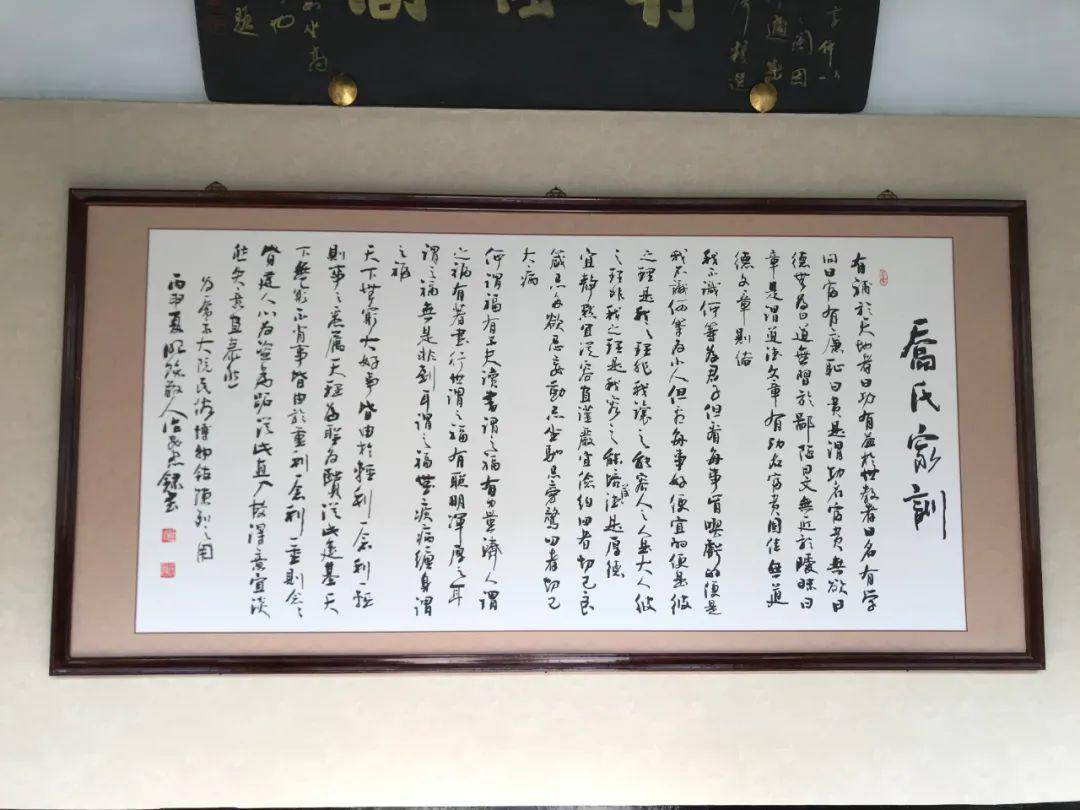 喬氏家訓
有補於天地者曰功有益於世教者曰名有学
问曰富有廉恥曰貴是謂功名富貴無欲曰
德無為曰道無習於鄙陋曰文無近於曖昧曰
章是謂道德文章有功名富貴固佳無道
德文章則俗
我不識何等為君子但看每事肯喫虧的便是
我不識何等為小人但看每事好便宜的便是彼
之理是我之理非我讓之能容人之人是大人彼
之理非我之理是我容之能培德是厚德
宜靜默宜從容宜謹嚴宜儉約四者切己良
箴忌多欲忌妄動忌坐馳忌旁騖四者切己
大病
何謂福有工夫讀書謂之福有力量濟人謂
之福有著書行世謂之福有聰明渾厚之耳
謂之福無是非到耳謂之福無疾病纏身謂
之福
天下無窮大好事皆由於輕利一念利一輕
則事之悉属天理為聖為賢從此進基天
下無窮不肖事皆由於重利一念利一重則念之
皆違人心為盜為跖從此直入故得意宜淡
然失意宜泰然
为喬家大院民俗博物馆陳列之用
丙申夏 散人 錄書